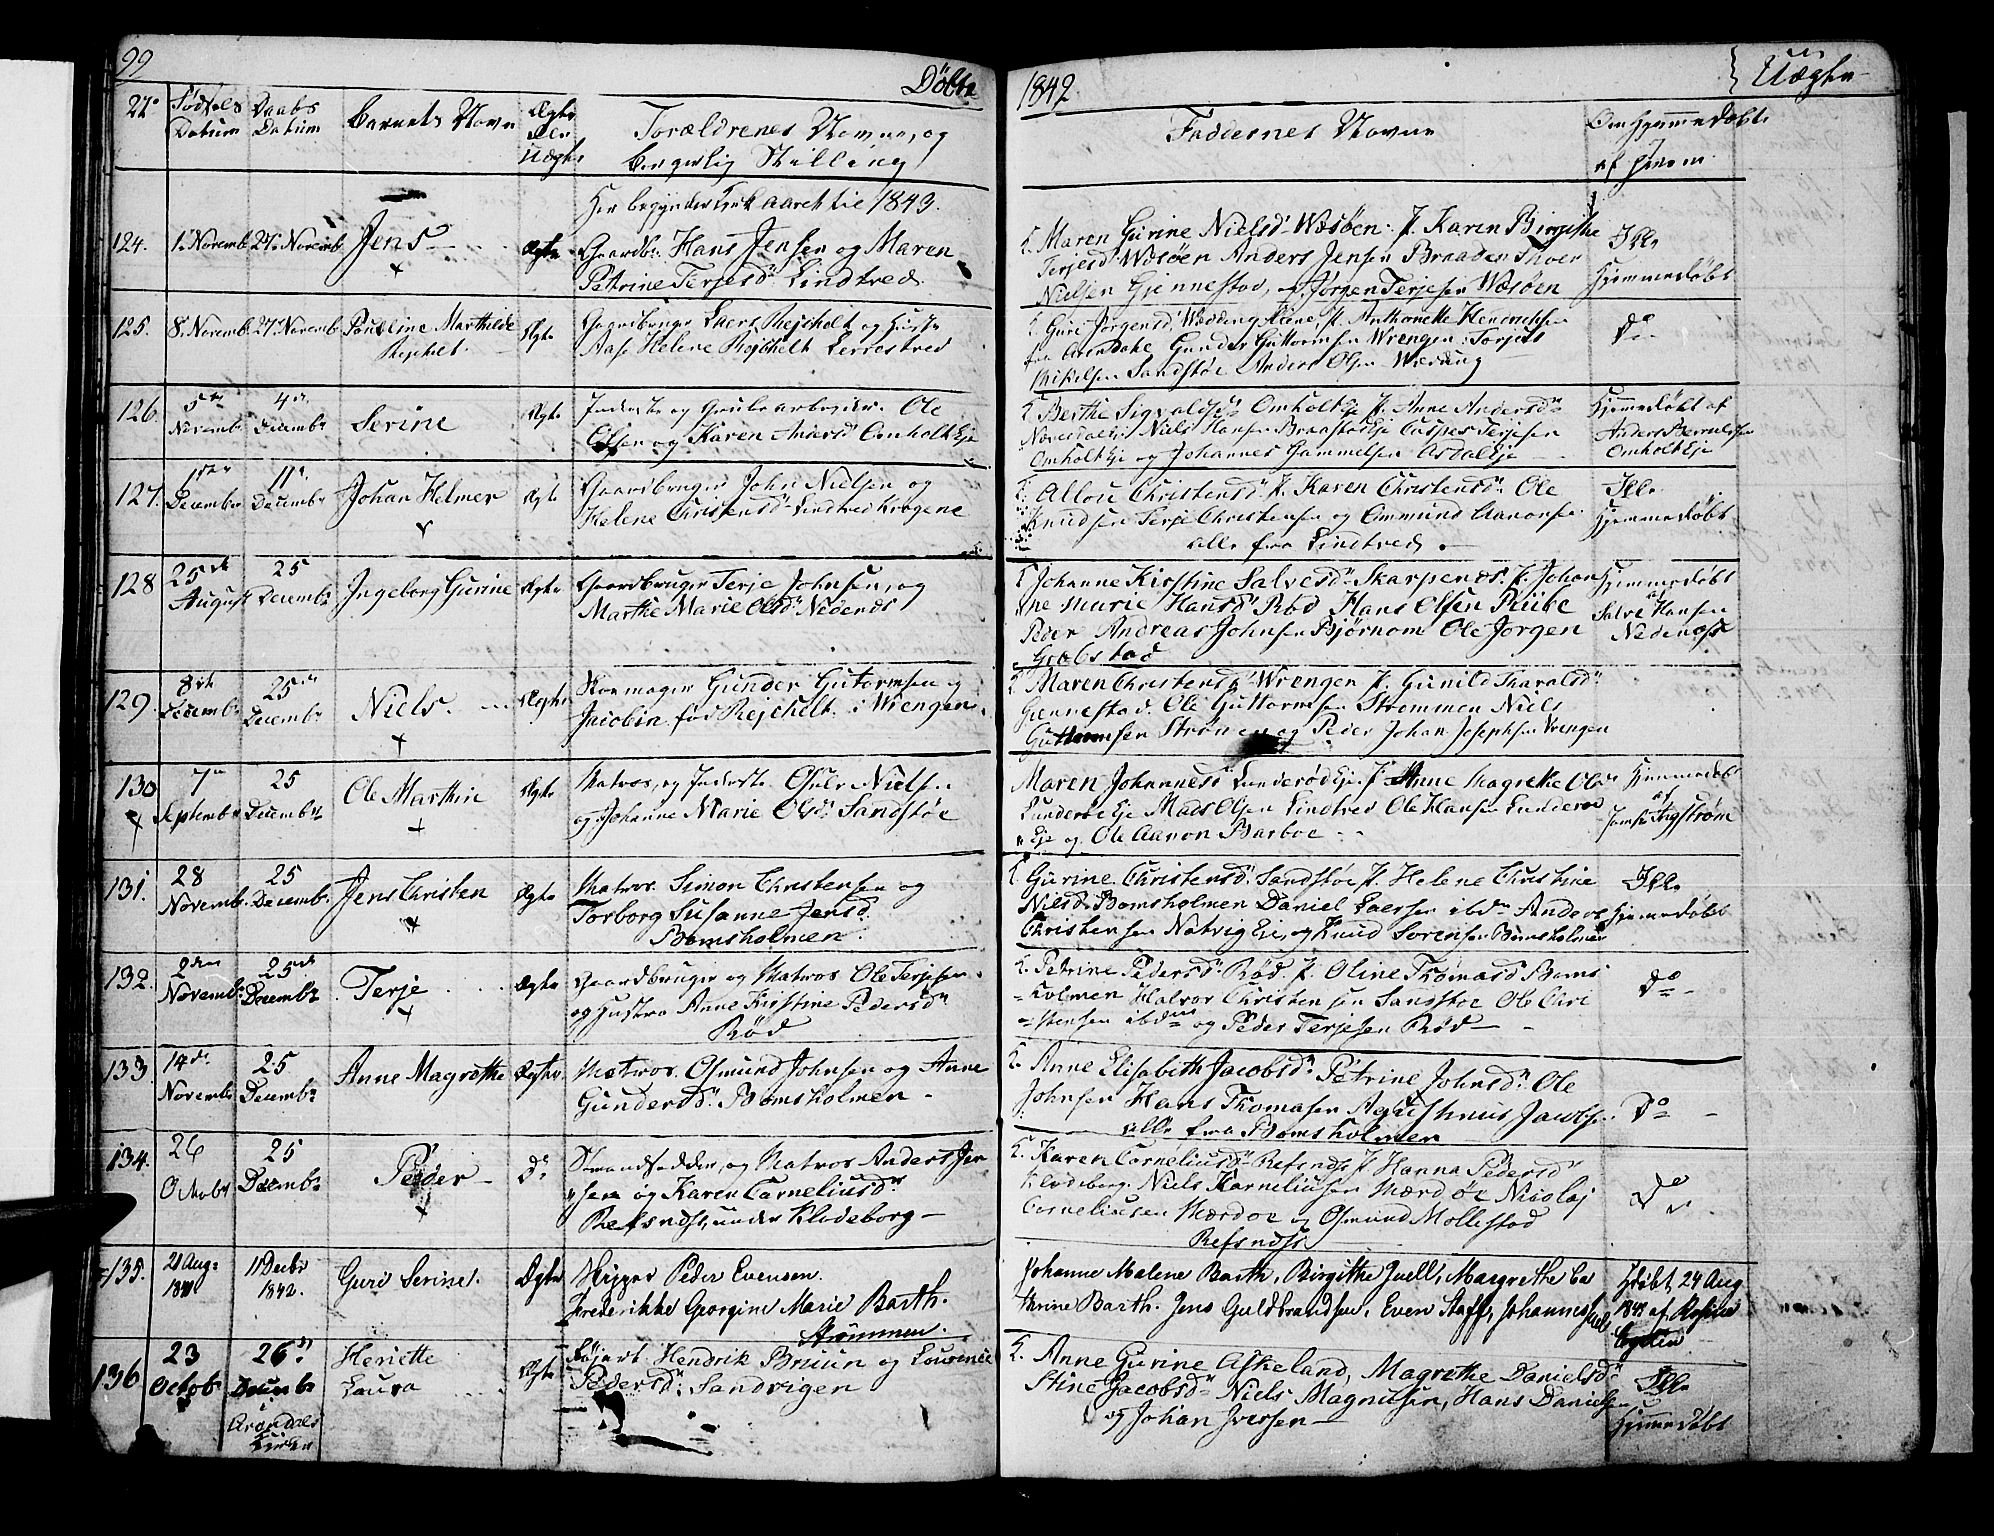 99
Döbte
1842
Uægte
No
Fødsels Datum
Daabs Datum
Barnets Navn
Ægte eller Uægte
Forældrenes Navne, og
borgerlig Stilling
Faddernes Navne
Om hjemmedøbt
af hvem.
Her begynder Kirkeaaret til 1843.
124. 1 Novemb. 27 Novemb. Jens Ægte
Gaardbr. Hans Jensen og Maren
Petrine Terjesd. Lindtved
Maren Gurine Nielsd. Wæsöen. Karen Birgithe
Terjesd. Wæsöen Anders Jensen Braaden Thor
Nielsen Gjennestad, Jørgen Terjesen Wæsöen
Ikke
Hjemmedøbt
125. 8 Novemb. 27 Novemb. Pauline Marthilde
Rejchelt Ægte
Gaardbruger Laers Rejchelt og Hustr.
Aase Helene Rejchelt Lerrestved
Gure Jørgensd. Anthonette Hendrichsen
fra Arendahl Gunder Guttormsen Wrengen Torjus
Mikelsen Sandstøe Anders Olsen
Do
126. 5 Novemb. 4 Decembr. Serine Ægte
Inderste og Grubearbeider Ole
Olsen og Karen Andersd. Omholt Eje
Berthe Sigvaldsd. Omholt Eje Anne Andersd.
Niels Hansen Braastad Eje Casper Terjesen
Omholt Eje og Johannes Gammelsen Asdal Eje
Hjemmedøbt af
Anders
Omholt Eje
127. 1 Decembr 11 Decembr Johan Helmer Ægte
Gaardbruger John Nielsen og
Helene Christensd. Lindtved Krogene
Christensd. Karen Christensd. Ole
Knudsen Terje Christensen og Ommund Aanonsen
alle fra Lindtved.
Ikke
Hjemmedøbt
128 25 August 25 Decembr Ingeborg Gurine Ægte
Gaardbruger Terje Johnsen, og
Marthe Marie Olsd. Nedenæs
Johanne Kirstine Salvesd. Skarpenæs Johan
ne Marie Hansd. Rød Hans Olsen
Peder Andreas Johnsen Bjørnom Ole Jørgen
Grobstad
Hjemmedøbt
Salve Hansen
Nedenæs
129. 8 Decembr 25 Decembr Niels. Ægte
Skomager Gunder Gutormsen og
Jacobin. fød Rejchelt. i Wrengen.
Maren Christensd. Wrengen Gunild Tharalsd.
Gjennestad. Ole Guttormsen Strømmen Niels
Guttormsen Strömen og Peder Johan Josephsen Vrengen
130 7 Septembr 25 Decembr Ole Marthin Ægte
Matros, og Inderste Nielsen
og Johanne Marie Olsd. Sandstøe
Maren Johannesd. Lunderød Eje Anne Magrethe Ols
Eje Mads Olsen Lindtved Ole Hansen
Eje og Ole Aanon Barboe
Hjemmedøbt
af
Angstrøm
131. 28 Novemb. 25 Decemb. Jens Christen Ægte
Matros. Simon Christensen og
Torborg Susanne Jensd.
Bomsholmen.
Gurine Christensd. Sandstøe Helene Christine
Nielsd. Bomsholmen Daniel Laersen ibdm Anders
Christensen Natvig Eje, og Knud Sørensen Bomsholmen
Ikke
Hjemmedøbt
132. 2 Novemb 25 Decembr Terje Ægte
Gaardbruger og Matros Ole Terjesen
og Hustro Anne Kirstine Pedersd.
Rød
Petrine Pedersd. Rød. Oline Thomasd Boms
holmen Halvor Christensen Sandstøe Ole Chri
stensen ibdm og Peder Terjesen Rød
Do
133. 14 Novemb. 25 Decembr Anne Magrethe Ægte
Matros. Osmund Johnsen og Anne
Gundersd. Bomsholmen
Anne Elisabeth Jacobsd. Petrine Johnsd. Ole
Johnsen Hans Thomasen Agusthinus Jacobsen
alle fra Bomsholmen
Do
134. 26 Octobr 25 Decembr Peder Do
Strandsidder, og Matros Anders Jen
sen og Karen Corneliusd.
Refsnæs, under Klodeborg
Karen Corneliusd. Refsnæs Hanna Pedersd.
Klodeborg. Niels Karneliusen Mærdöe Nicolaj
Corneliusen Mærdoe og Osmund Mollestad
Refsnæs
Do
135. 21 Aug. 11 Decbr 1842. Guro Serine. Ægte
Skipper Peder Evensen.
Frederikke Georgine Marie Barth.
Strömmen.
Johanne Malene Barth, Birgithe Juell, Margrethe Ca
thrine Barth. Jens Guldbrandsen, Even Staff, Johannes Juell
Hdøbt, 24 Aug
136 23 Octobr 26 Decembr
i
Arendals
Kirke
Henriette
Laura Ægte
Hendrik Bruun og Lovense
Pedersd. Sandvigen
Anne Gurine Askeland, Magrethe Danielsd.
Stine Jacobsd. Niels Magnusen, Hans Danielsen
og Johan Iversen
Ikke
Hjemmedøbt